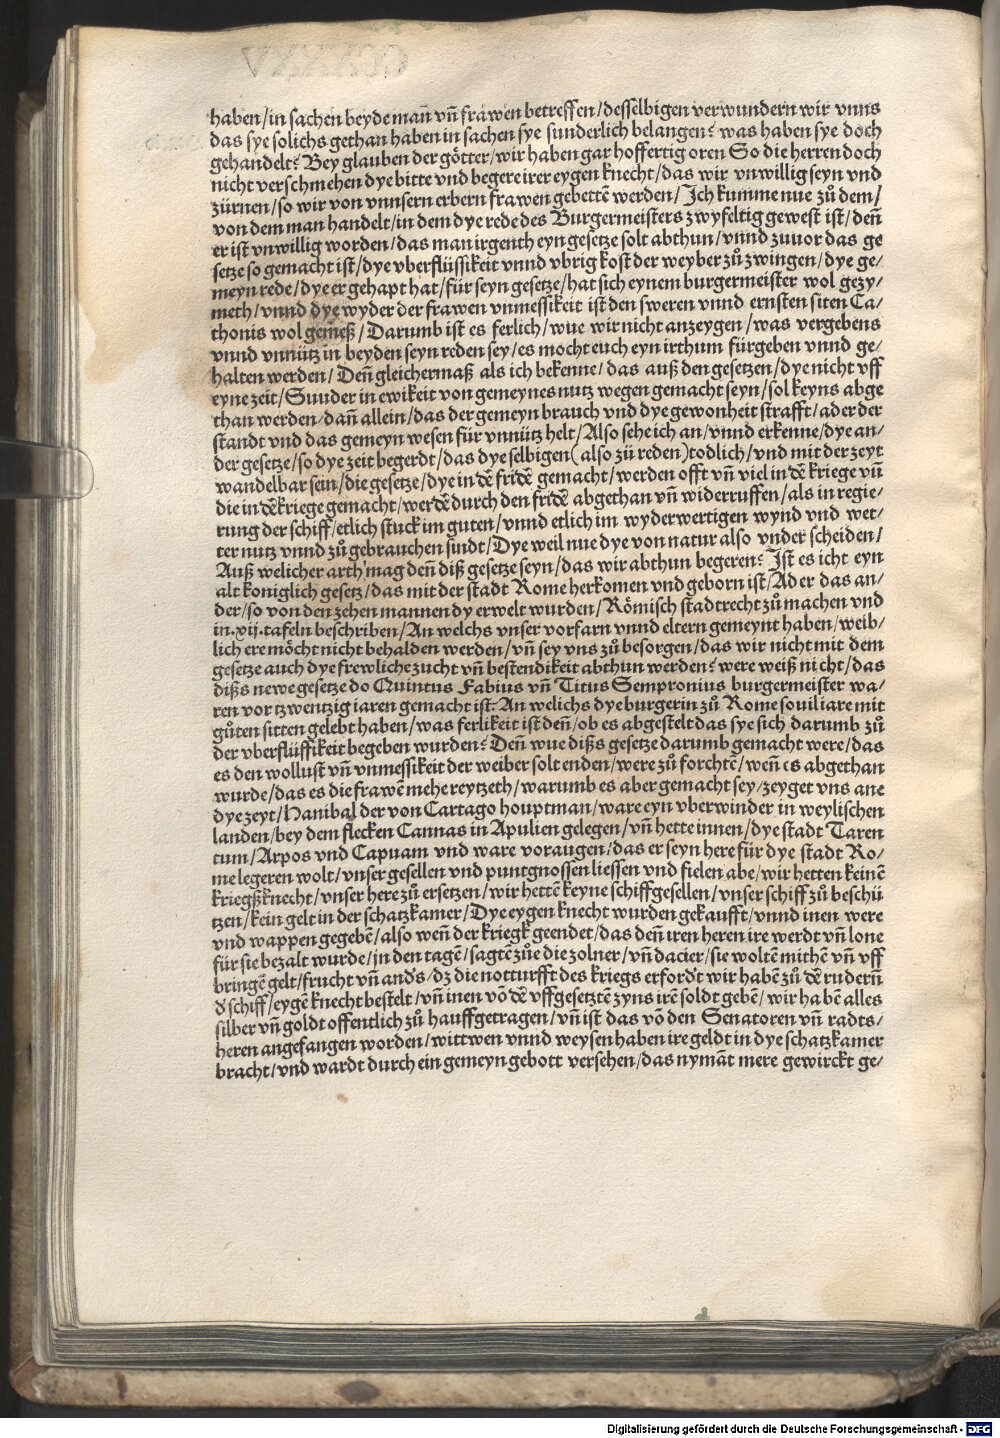 haben/in sachen beyde man̄ vn̄ frawen betreffen/desselbigen verwundern wir vnns
das sye solichs gethan haben in sachen sye sunderlich belangen? was haben sye doch
gehandelt? Bey glauben der götter/wir haben gar hoffertig oren So die herren doch
nicht verschmehen dye bitte vnd begere irer eygen knecht/das wir vnwillig seyn vnd
zürnen/so wir von vnnsern erbern frawen gebettē werden/Ich kumme nue zů dem/
von dem man handelt/in dem dye rede des Burgermeisters zwyfeltig gewest ist/den̄
er ist vnwillig worden/das man irgenth eyn gesetze solt abthun/vnnd zuuor das ge
setze so gemacht ist/dye vberflüssikeit vnnd vbrig kost der weyber zů zwingen/dye ge/
meyn rede/dye er gehapt hat/für seyn gesetze/hat sich eynem burgermeister wol gezy/
meth/vnnd dye wyder der frawen vnmessikeit ist den sweren vnnd ernsten siten Ca/
thonis wol gemeß/Darumb ist es ferlich/wue wir nicht anzeygen/was vergebens
vnnd vnnütz in beyden seyn reden sey/es mocht euch eyn irthum fürgeben vnnd ge/
halten werden/Den̄ gleichermaß als ich bekenne/das auß den gesetzen/dye nicht vff
eyne zeit/Suuder in ewikeit von gemeynes nutz wegen gemacht seyn/sol keyns abge
than werden/dan̄ allein/das der gemeyn brauch vnd dye gewonheit strafft/ader der
standt vnd das gemeyn wesen für vnnütz helt/Also sehe ich an/vnnd erkenne/dye an/
der gesetze/so dye zeit begerdt/das dye selbigen(also zü reden)todlich/vnd mit der zeyt
wandelbar sein/die gesetze/dye in dē fridē gemacht/werden offt vn̄ viel in dē kriege vn̄
die in dē kriege gemacht/werdē durch den fridē abgethan vn̄ widerruffen/als in regie/
rung der schiff/etlich stuck im guten/vnnd etlich im wyderwertigen wynd vnd wet/
ter nutz vnnd zů gebrauchen sindt/Dye weil nue dye von natur also vnder scheiden/
Auß welicher arth mag den̄ diß gesetze seyn/das wir abthun begeren? Ist es icht eyn
alt koniglich gesetz/das mit der stadt Rome herkomen vnd geborn ist/Ader das an/
der/so von den zehen mannen dy erwelt wurden/Römisch stadtrecht zů machen vnd
in.xij.tafeln beschriben/An welchs vnser vorfarn vnnd eltern gemeynt haben/weib/
lich ere möcht nicht behalden werden/vn̄ sey vns zů besorgen/das wir nicht mit dem
gesetze auch dye frewliche zucht vn̄ bestendikeit abthun werden? were weiß nicht/das
dißs newe gesetze do Quintus Fabius vn̄ Titus Sempronius burgermeister wa/
ren vor tzwentzig iaren gemacht ist. An welichs dye burgerin zů Rome souil iare mit
gůten sitten gelebt haben/was ferlikeit ist den̄/ob es abgestelt das sye sich darumb zů
der vberflüssikeit begeben wurden? Den̄ wue dißs gesetze darumb gemacht were/das
es den wollust vn̄ vnmessikeit der weiber solt enden/were zů forchtē/wen̄ es abgethan
wurde/das es die frawē mehe reytzeth/warumb es aber gemacht sey/zeyget vns ane
dye zeyt/Hanibal der von Cartago houptman/ware eyn vberwinder in weylischen
landen/bey dem flecken Cannas in Apulien gelegen/vn̄ hette innen/dye stadt Taren
tum/Arpos vnd Capuam vnd ware voraugen/das er seyn here für dye stadt Ro/
me legeren wolt/vnser gesellen vnd puntgnossen liessen vnd fielen abe/wir hetten keinē
kriegßknecht/vnser here zů ersetzen/wir hettē keyne schiffgesellen/vnser schiff zů beschü
tzen/kein gelt in der schatzkamer/Dye eygen knecht wurden gekaufft/vnnd inen were
vnd wappen gegebē/also wen̄ der kriegk geendet/das den̄ iren heren ire werdt vn̄ lone
für sie bezalt wurde/in den tagē/sagtē zůe die zolner/vn̄ dacier/sie woltē mithē vn̄ vff
bringē gelt/frucht vn̄ and's/dz die notturfft des kriegs erfordt wir habē zů dē rudern̄
d' schiff/eygē knecht bestelt/vn̄ inen vō dē vffgesetztē zyns irē soldt gebē/wir habē alles
silber vn̄ goldt offentlich zů hauff getragen/vn̄ ist das vō den Senatoren vn̄ radts/
heren angefangen worden/wittwen vnnd weysen haben ire geldt in dye schatzkamer
bracht/vnd wardt durch ein gemeyn gebott versehen/das nymāt mere gewirckt ge/
Digitalisierung gefördert durch die Deutsche Forschungsgemeinschaft - DFG